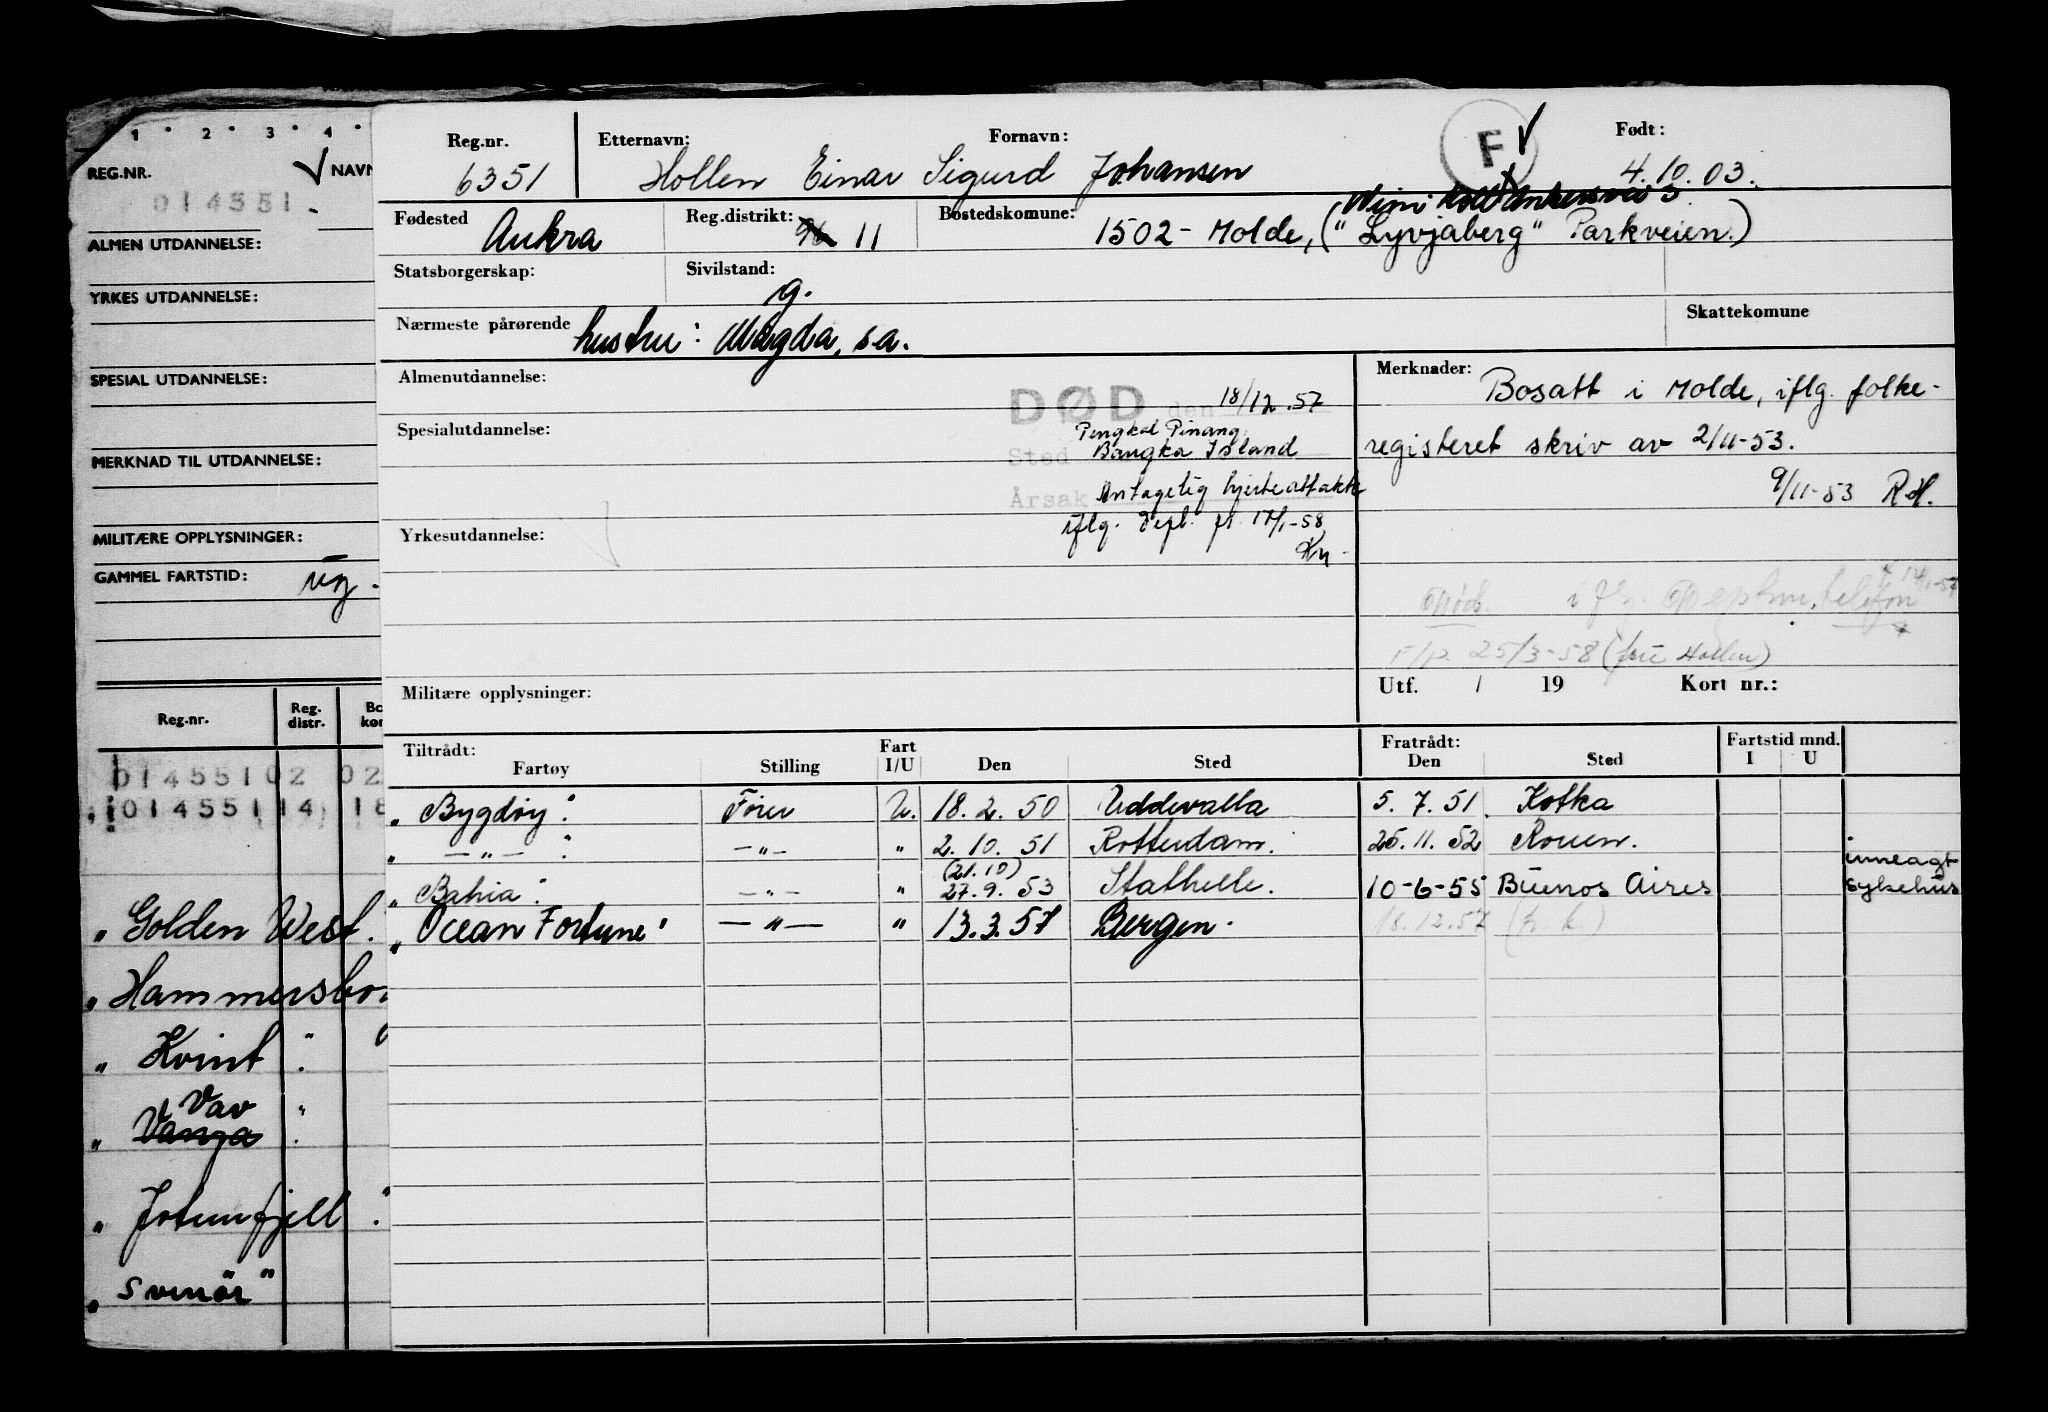 1 2 3 4
REG.NR. NAVN
014551
ALMEN UTDANNELSE:
YRKES UTDANNELSE:
SPESIAL UTDANNELSE:
MERKNAD TIL UTDANNELSE:
MILITÆRE OPPLYSNINGER:
GAMMEL FARTSTID:
Reg.nr. Reg. distr.
01455102 02
01455114 18
"Golden West"
"Hammersbo
"Kvint"
Vav
"Vanja"
"Jotunfjell"
"Svenör"
Reg.nr. Etternavn: Fornavn: F Født:
6351 Hollen Einar Sigurd Johansen 4.10.03.
Fødested Aukra Reg.distrikt: 96 11 Bostedskomune: 1502 - Molde, ("Lyvjaberg" Parkveien.)
Statsborgerskap: Sivilstand: g.
Nærmeste pårørende hustru: Magda, s.a. Skattekomune
Almenutdannelse: Merknader: Bosatt i Molde, iflg. folke-
DØD den 18/12.57
Spesialutdannelse: registeret skriv av 2/11-53.
Sted Pengkal Pinang, Bangka Island
9/11-53 R.H.
Årsak Antagelig hjerteattakk
iflg. Dept. fl. 17/1-58
Yrkesutdannelse:
iflg. telefon
25/3-58 (fru Hollen)
Militære opplysninger: Utf. / 19 Kort nr.:
Tiltrådt: Fart Fratrådt: Fartstid mnd.
Fartøy Stilling I/U Den Sted Den Sted I U
"Bygdøy" Fører U. 18.2.50 Uddevalla 5.7.51. Kotka
" — " — " — " — " 2.10.51 Rotterdam. 25.11.52 Rouen.
(21.10)
"Bahia" — " — " 27.9.53 Stathelle. 10-6-55 Buenos Aires innlagt sykehus
"Ocean Fortune" — " — " 13.3.57 Bergen. 18.12.57 (h.k.)